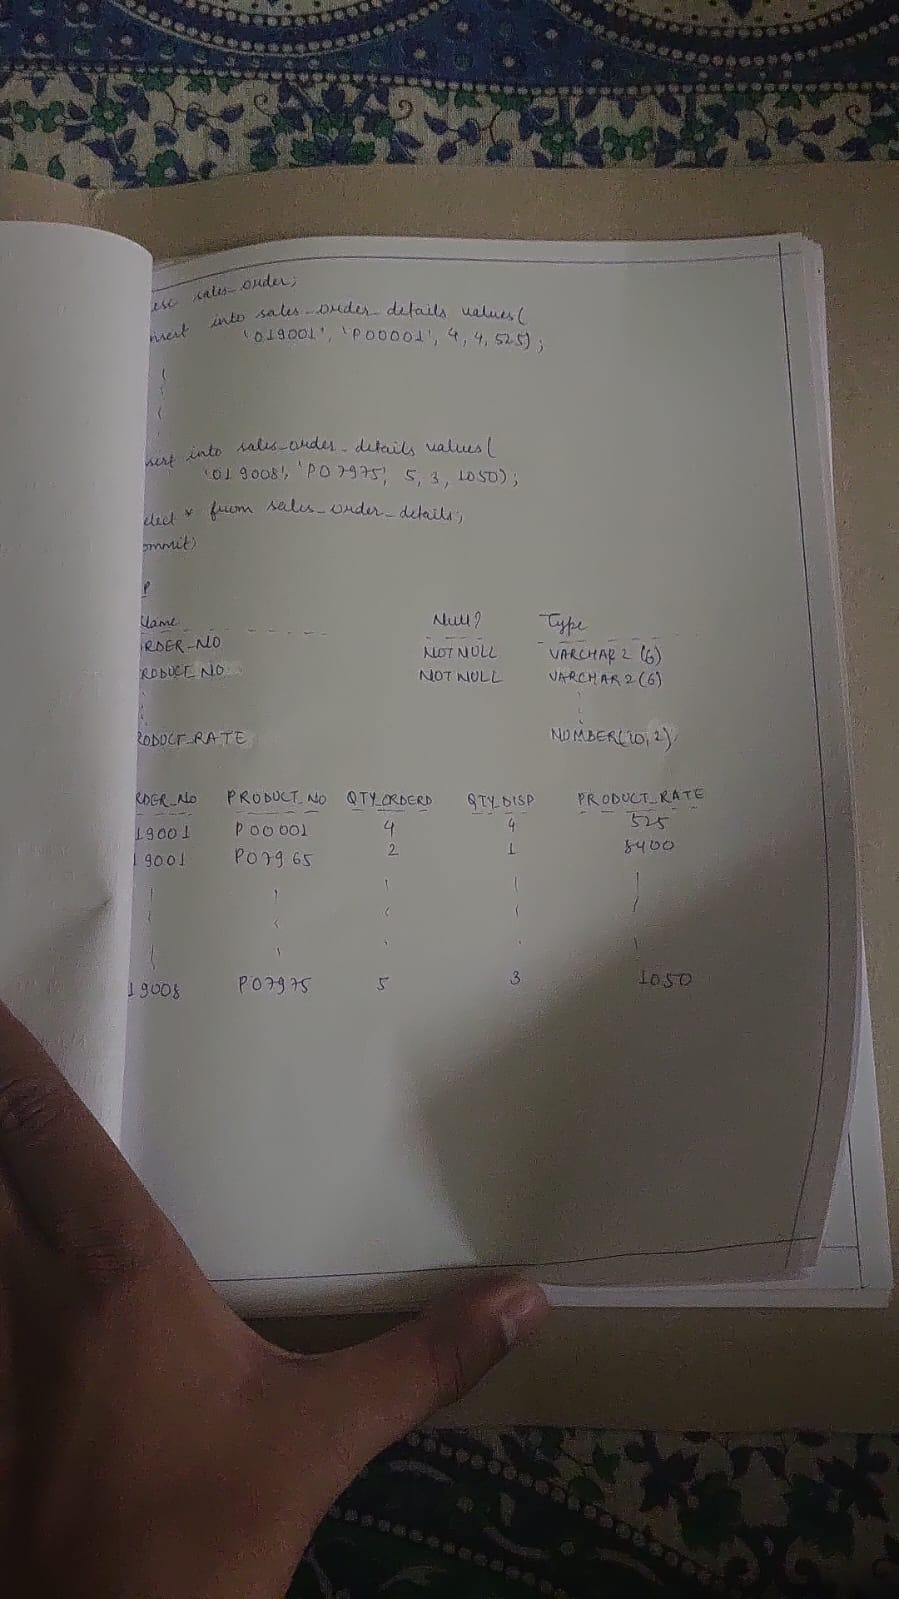 esc sales_order;
nsert into sales_order_details values(
'019001', 'P00001', 4, 4, 525);
sert into sales_order_details values(
'019008', 'P07975', 5, 3, 1050);
elect * from sales_order_details;
ommit;
Name Null? Type
RDER_NO NOT NULL VARCHAR2(6)
RODUCT_NO NOT NULL VARCHAR2(6)
RODUCT_RATE NUMBER(10,2)
RDER_NO PRODUCT_NO QTY_ORDERD QTY_DISP PRODUCT_RATE
19001 P00001 4 4 525
19001 P07965 2 1 8400
19008 P07975 5 3 1050